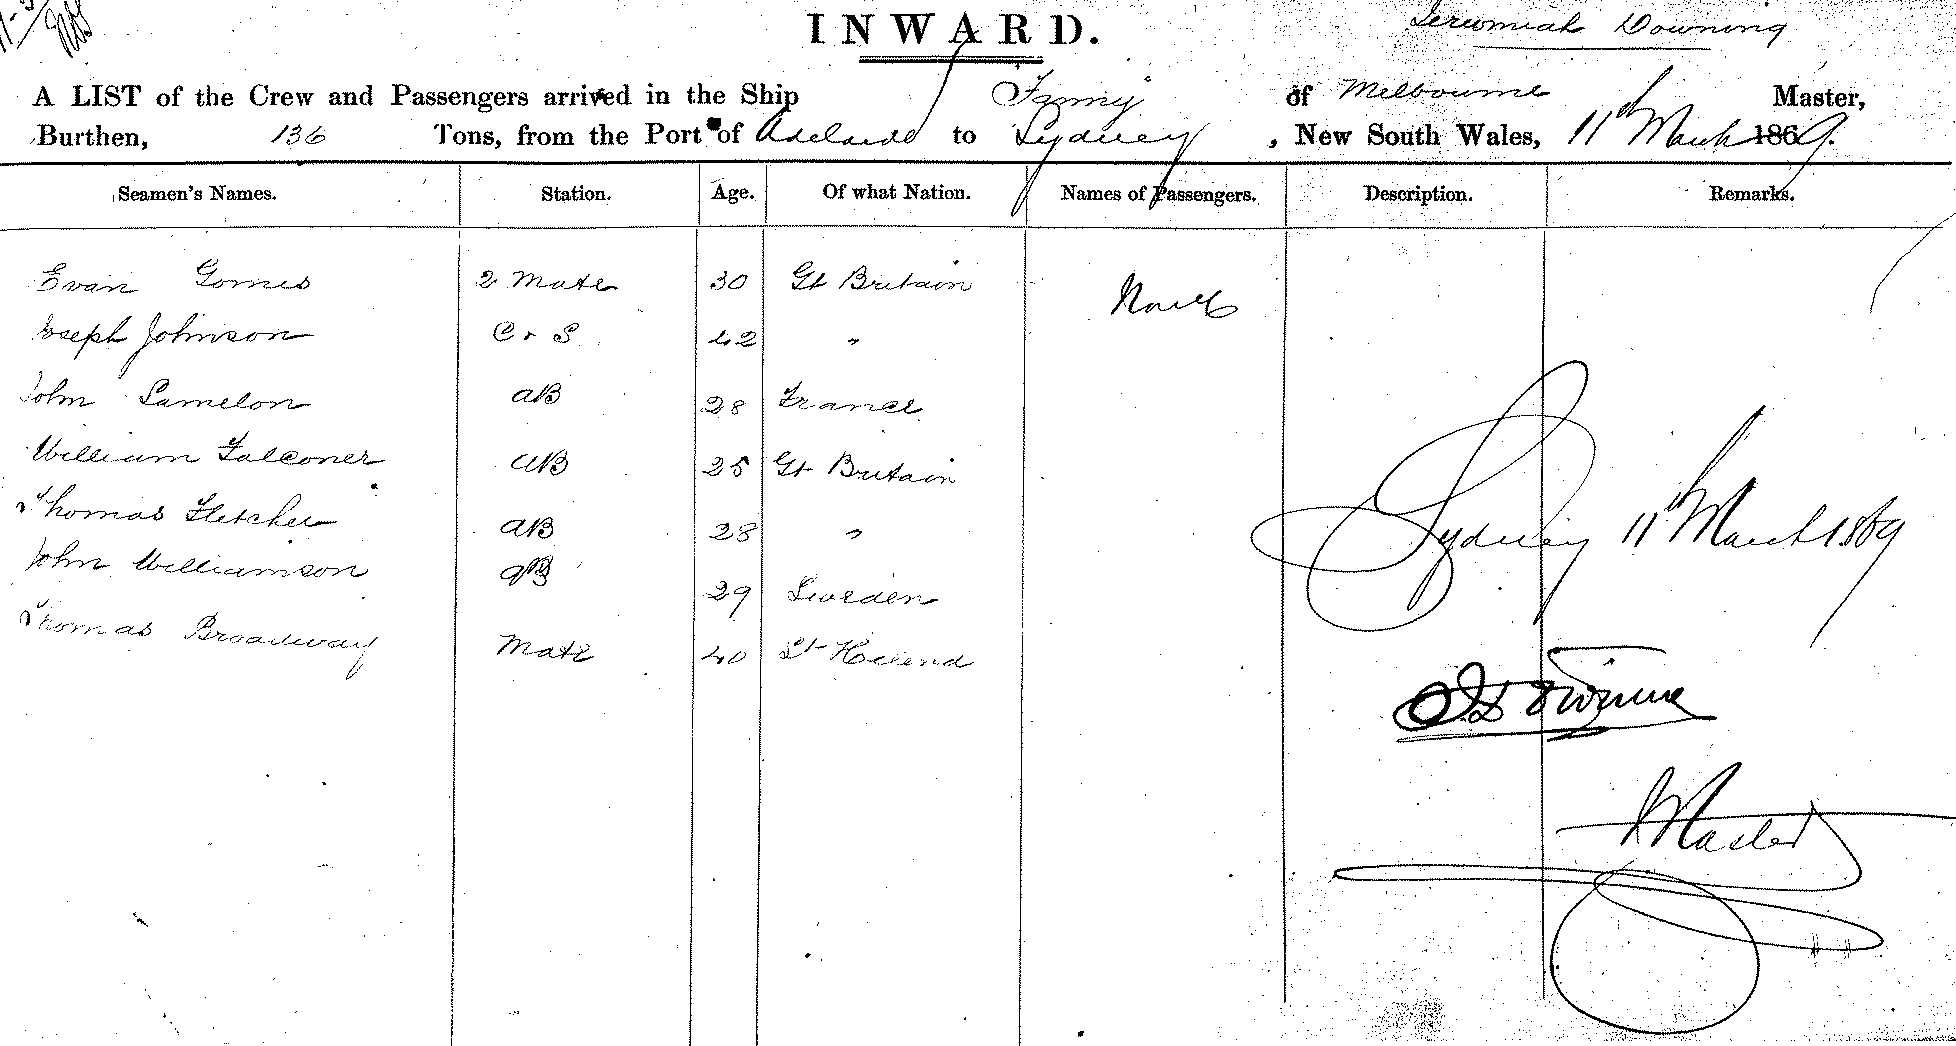 INWARD.
Jeremiah Downing
A LIST of the Crew and Passengers arrived in the Ship Fanny of Melbourne Master,
Burthen, 136 Tons, from the Port of Adelaide to Sydney, New South Wales, 11th March 1869.
Seamen's Names. Station. Age. Of what Nation. Names of Passengers. Description. Remarks.
Evan Gomes 2 Mate 30 Gt Britain None
Joseph Johnson C & S 42 "
John Lamelon AB 28 France
William Falconer AB 25 Gt Britain
Thomas Fletcher AB 28 "
Sydney 11th March 1869
John Williamson AB 29 Sweden
Thomas Broadway Mate 40 St Helena
J Downing
Master